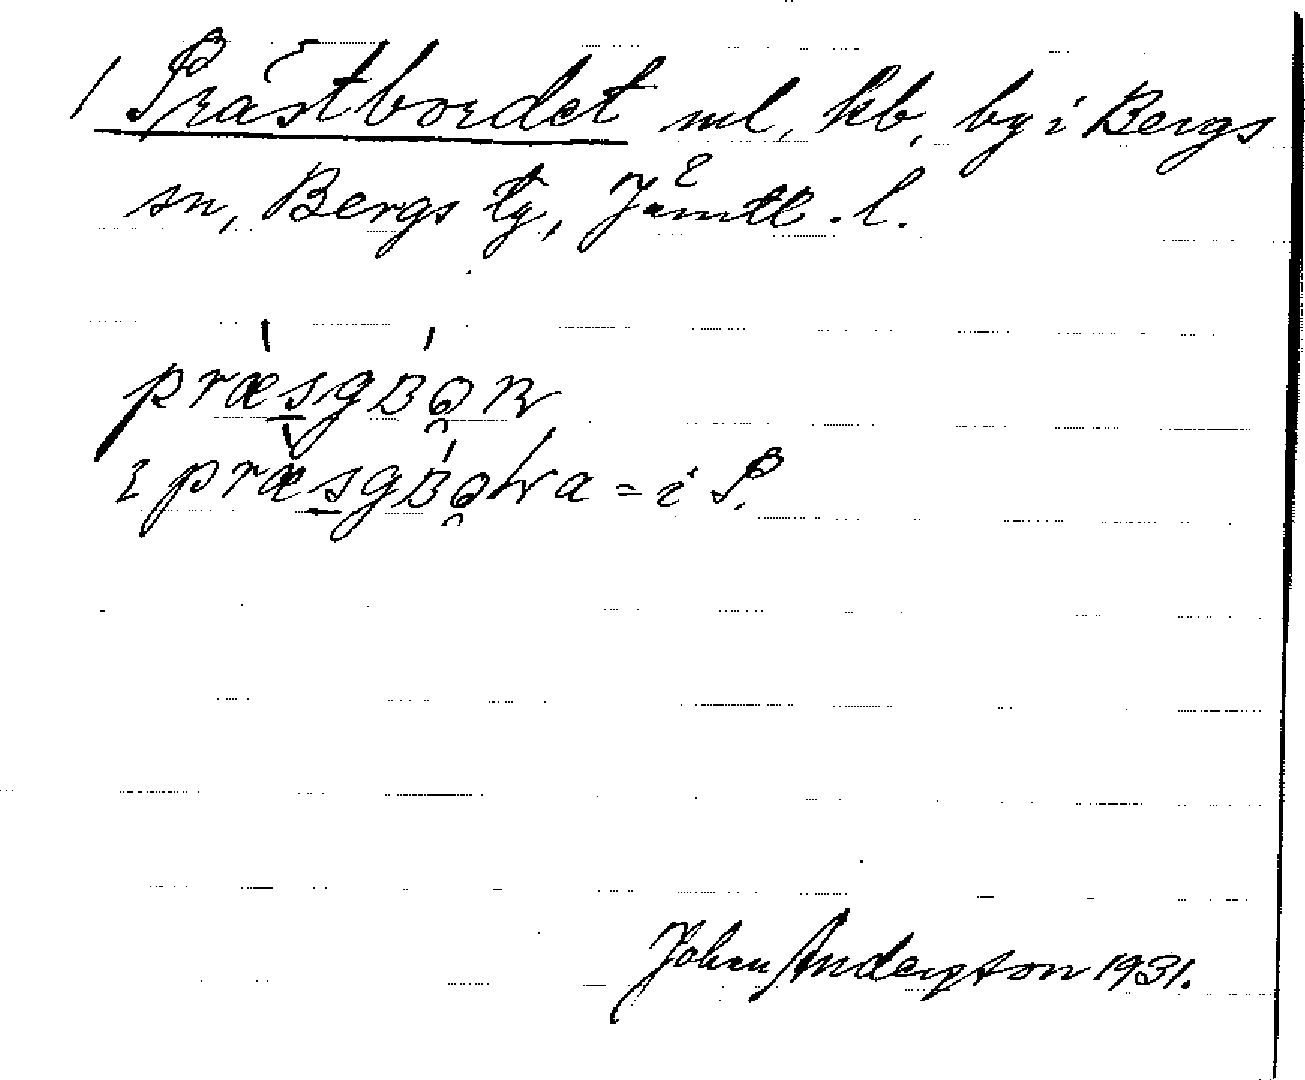 1 Prästbordet ml, kb, by i Bergs
sn, Bergs tg, Jämtl. l.
præsgbo̯n
ı præsgbo̯ʟa = i P.
Johan Anderzon 1931.